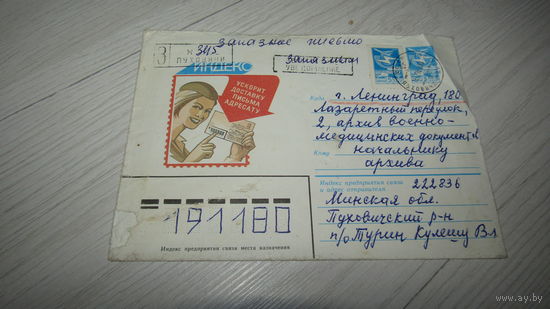 Заказное письмо
З
№ 345
ПУХОВИЧИ
Заказное
УВЕДОМЛЕНИЕ
ИНДЕКС
УСКОРИТ
ДОСТАВКУ
ПИСЬМА
АДРЕСАТУ
Куда г. Ленинград, 180
Лазаретный переулок,
2, архив военно-
медицинских документов
Кому начальнику
архива
Индекс предприятия связи
и адрес отправителя 222836
Минская обл.
Пуховичский р-н
п/о Турин Кулешу Вл
191180
Индекс предприятия связи места назначения
www.ay.by